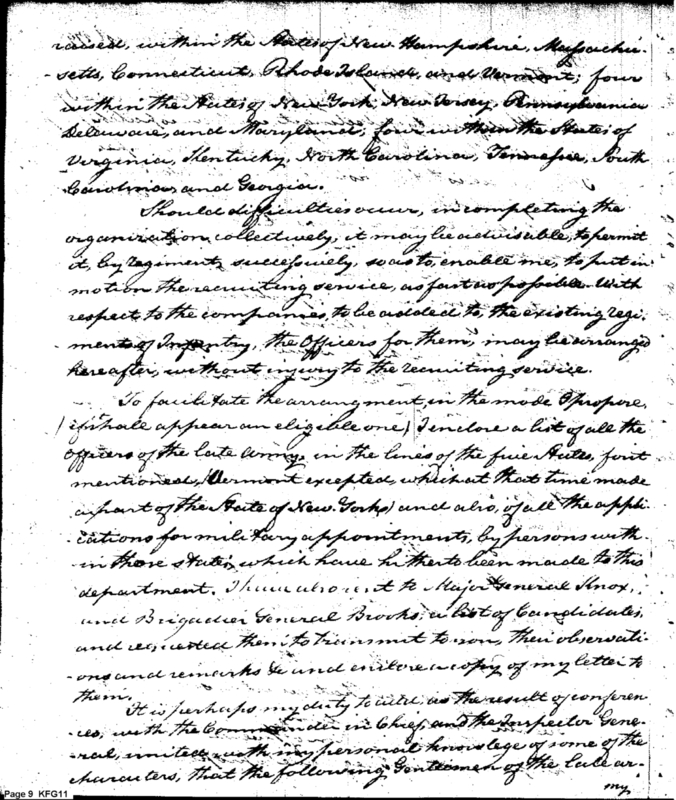 raised, within the States of New Hampshire, Massachu-
setts, Connecticut, Rhode Island, and Vermont; four
within the States of New York, New Jersey, Pennsylvania
Delaware, and Maryland; four within the States of
Virginia, Kentucky, North Carolina, Tennessee, South
Carolina, and Georgia.
Should difficulties occur, in completing the
organization collectively, it may be advisable, to permit
it, by regiment, successively, so as to, enable me, to put in
motion the recruiting service, as fast as possible. With
respect to the companies, to be added to, the existing regi-
-ments of Infantry, the Officers for them, may be arranged
hereafter, without injury to the recruiting service.
To facilitate the arrangment in the mode I propose,
(if it shall appear an eligible one) I enclose a list of all the
Officers of the late army, in the lines of the five States, first
mentioned, (Vermont excepted, which at that time made
a part of the State of New York) and also, of all the appli-
-cations for military appointments, by persons with-
in those states, which have hitherto been made to this
department. I have also sent to Major General Knox,
and Brigadier General Brooks, a list of Candidates,
and requested them to transmit to you, their observati-
-ons and remarks & and enclose a copy of my letter to
them.
It is perhaps my duty to add, as the result of conferen-
-ces, with the Commander in Chief, and the Inspector Gene-
-ral, united with my personal knowledge of some of the
characters, that the following Gentlemen of the late ar-
my
Page 9 KFG11